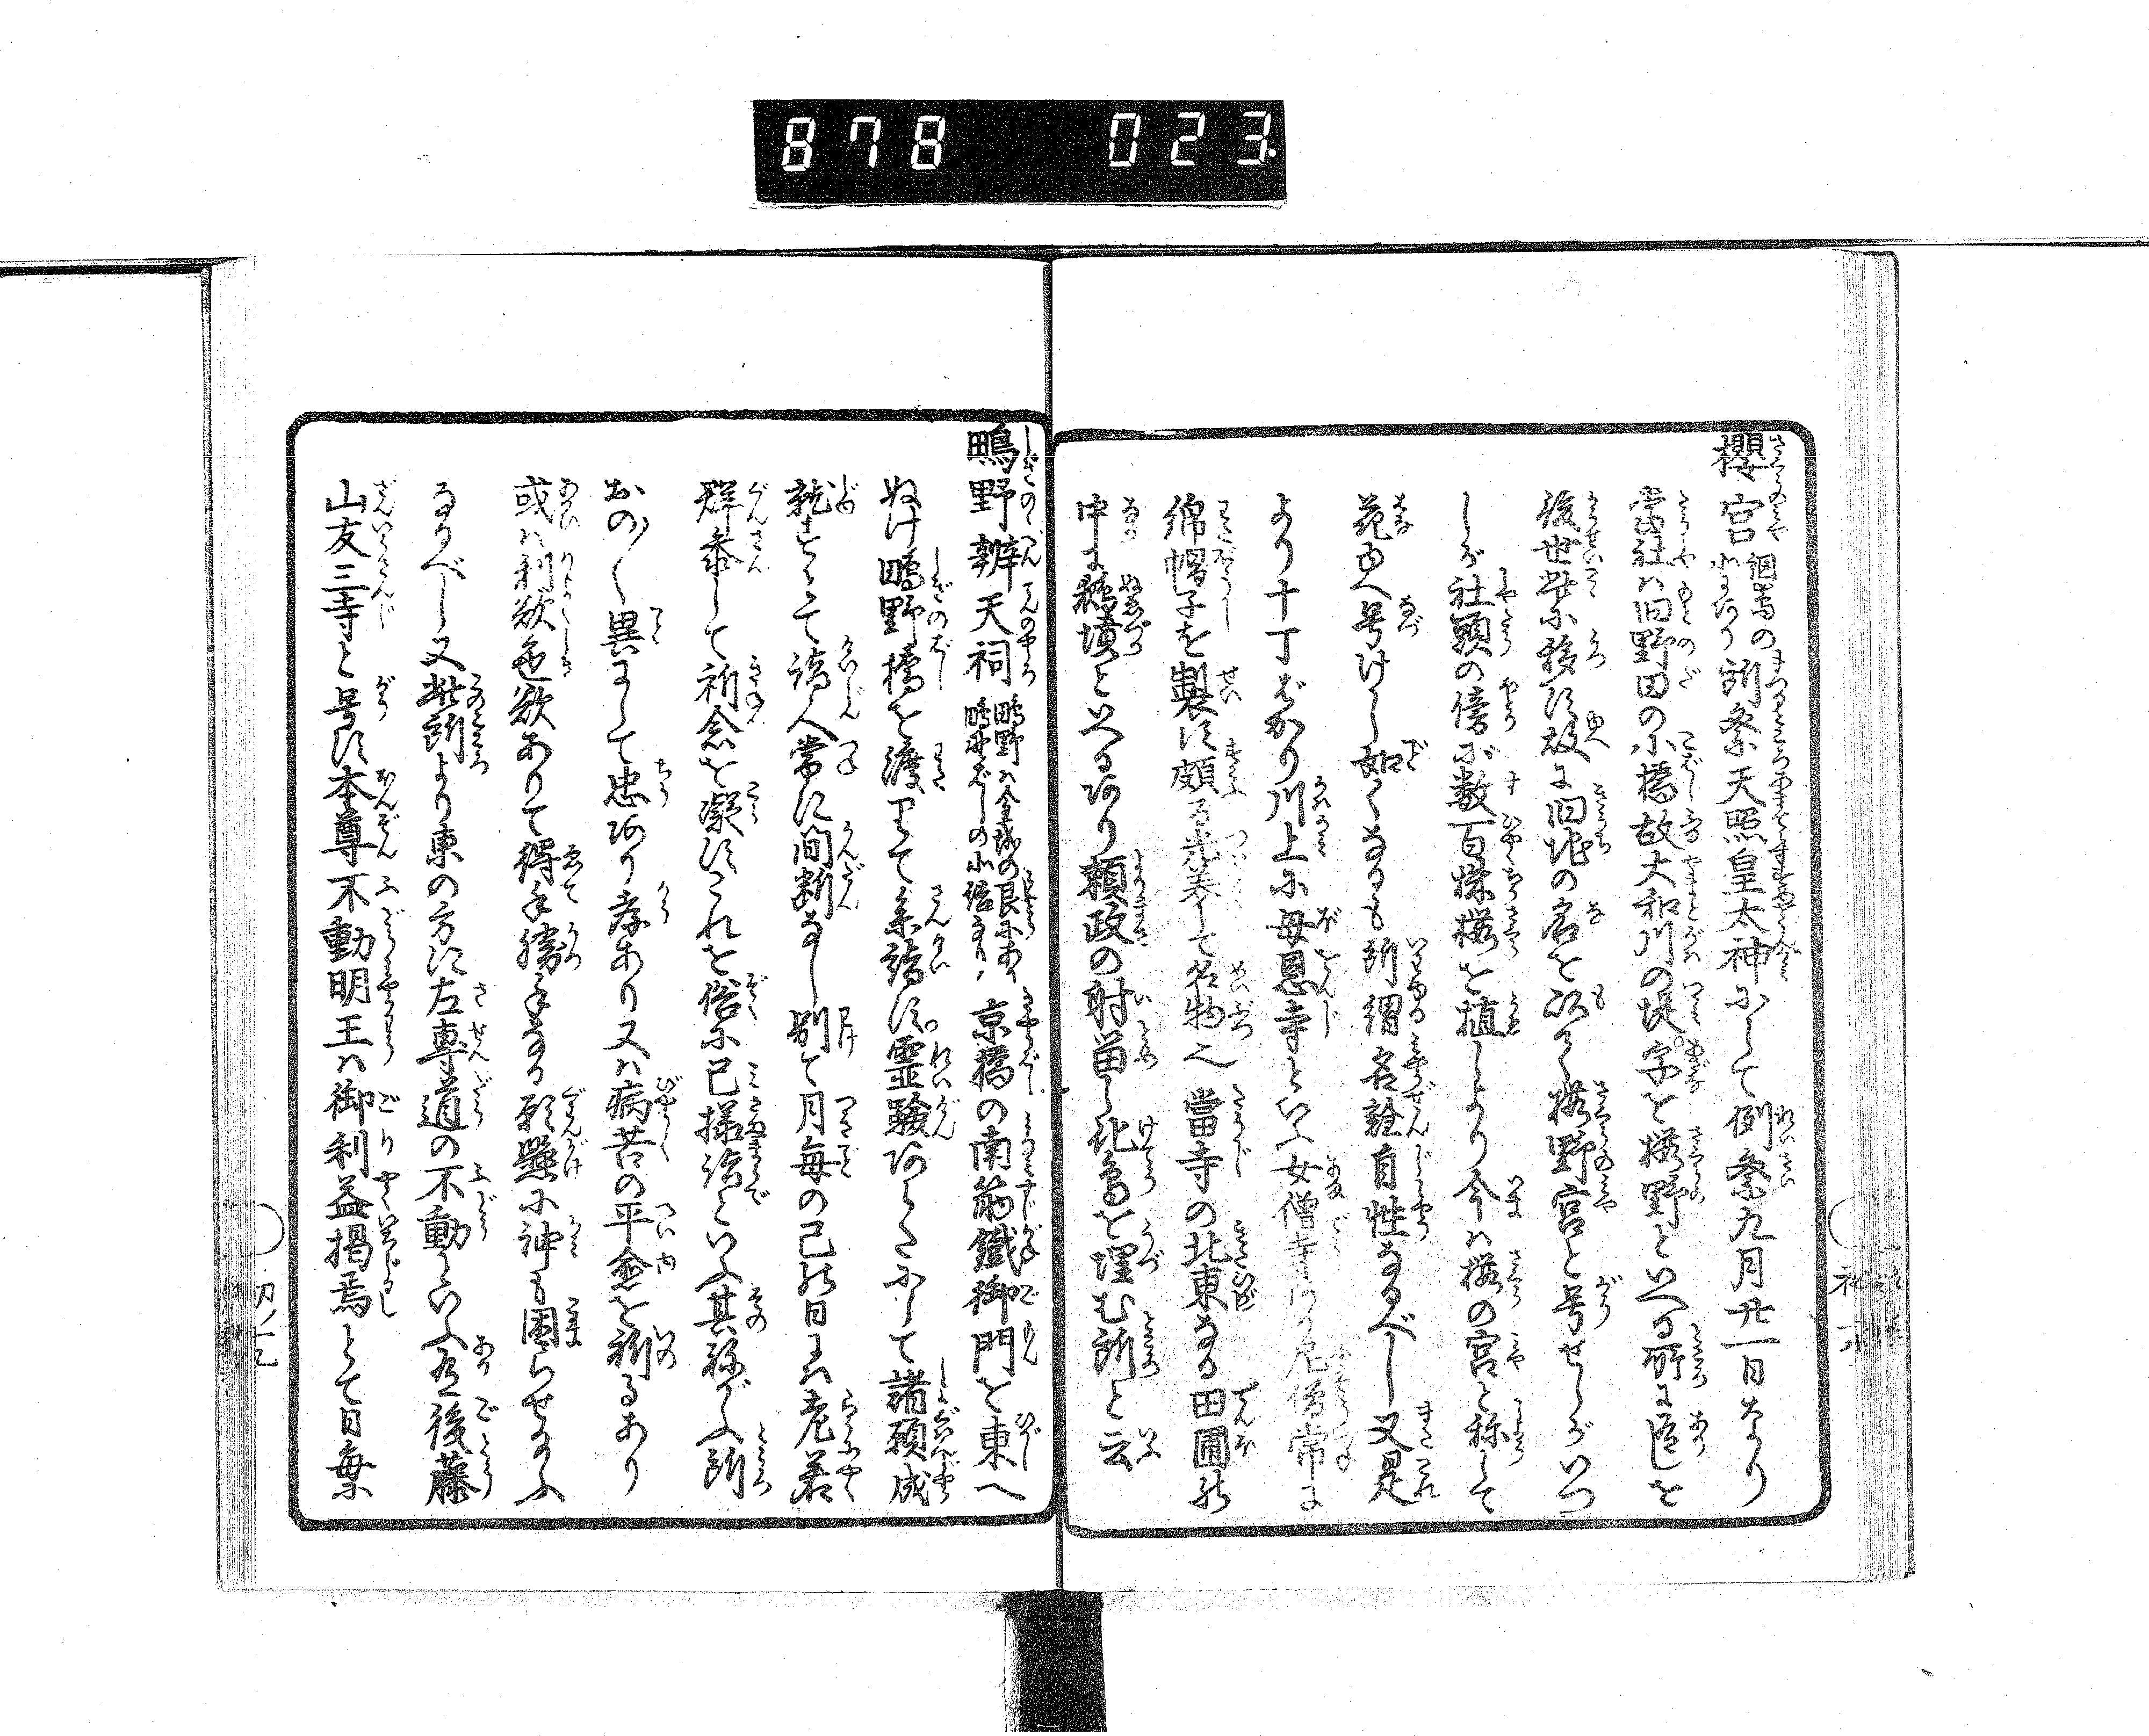 878 023
櫻宮 網嶌の北にあり 所祭天照皇太神にして例祭九月廿一日なり
當社ハ旧野田の小橋故大和川の堤字を櫻野といへる所に臨しを
後世此に移す故に旧地の名を以て櫻野宮と号せしがいつ
しか社頭の傍に数百株桜を植しより今ハ櫻の宮と称して
花ゆへ号けし如くなるも所謂名詮自性なるべし又是
より十丁ばかり川上に母恩寺といふ女僧寺あり尼僧常に
綿帽子を製す頗る光美して名物也當寺の北東なる田圃の
中に鵺墳といへるあり頼政の射留し化鳥を埋む所と云
鴫野辨天祠 鴫野ハ金城の艮にあり鴫野ばしの北詰なり 京橋の南筋鐡御門を東へ
ぬけ鴫野橋を渡りて参詣す霊験あらたにして諸願成
就すとて詣人常に間断なし別て月毎の己の日にハ老若
群参して祈念を凝すこれを俗に巳様詣といふ其祢がふ所
おの〳〵異にして忠あり孝あり又ハ病苦の平愈を祈るあり
或ハ利欲色欲ありて得手勝手なる願懸に神も困らせ給ふ
なるべし又此所より東の方に左専道の不動といふ有後藤
山友三寺と号す本尊不動明王ハ御利益掲焉とて日毎